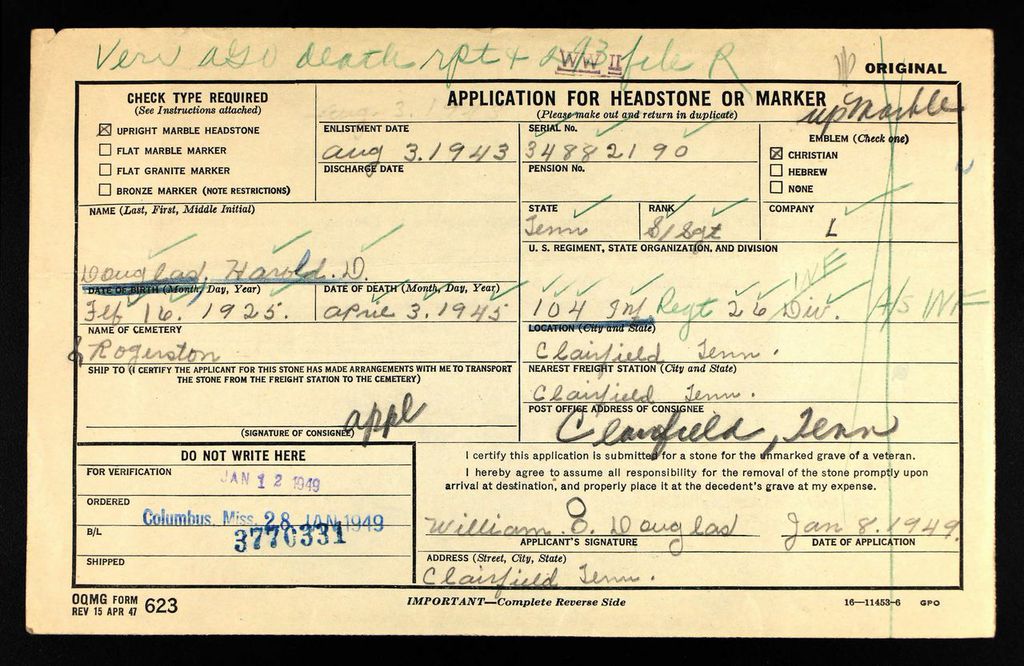 Veri AGO death rpt + 293 file R
WW II
ORIGINAL
CHECK TYPE REQUIRED
(See Instructions attached)
☒ UPRIGHT MARBLE HEADSTONE
☐ FLAT MARBLE MARKER
☐ FLAT GRANITE MARKER
☐ BRONZE MARKER (NOTE RESTRICTIONS)
APPLICATION FOR HEADSTONE OR MARKER
(Please make out and return in duplicate)
up Marble
ENLISTMENT DATE
Aug 3. 1943
DISCHARGE DATE
SERIAL No.
34882190
PENSION No.
EMBLEM (Check one)
☒ CHRISTIAN
☐ HEBREW
☐ NONE
NAME (Last, First, Middle Initial)
Douglas, Harold. D.
STATE
Tenn
RANK
S/Sgt
COMPANY
L
U. S. REGIMENT, STATE ORGANIZATION, AND DIVISION
INF
104 Inf Regt 26 Div. A/S INF
DATE OF BIRTH (Month, Day, Year)
Feb 16. 1925.
DATE OF DEATH (Month, Day, Year)
April 3. 1945
NAME OF CEMETERY
Rogerston
LOCATION (City and State)
Clairfield Tenn.
SHIP TO (I CERTIFY THE APPLICANT FOR THIS STONE HAS MADE ARRANGEMENTS WITH ME TO TRANSPORT
THE STONE FROM THE FREIGHT STATION TO THE CEMETERY)
appl
(SIGNATURE OF CONSIGNEE)
NEAREST FREIGHT STATION (City and State)
Clairfield Tenn.
POST OFFICE ADDRESS OF CONSIGNEE
Clairfield, Tenn
DO NOT WRITE HERE
FOR VERIFICATION
JAN 12 1949
ORDERED
Columbus, Miss. 28 JAN 1949
B/L
3770331
SHIPPED
I certify this application is submitted for a stone for the unmarked grave of a veteran.
I hereby agree to assume all responsibility for the removal of the stone promptly upon
arrival at destination, and properly place it at the decedent's grave at my expense.
William. O. Douglas Jan 8. 1949.
APPLICANT'S SIGNATURE DATE OF APPLICATION
ADDRESS (Street, City, State)
Clairfield Tenn.
OQMG FORM
REV 15 APR 47 623
IMPORTANT—Complete Reverse Side
16—11453-6 GPO